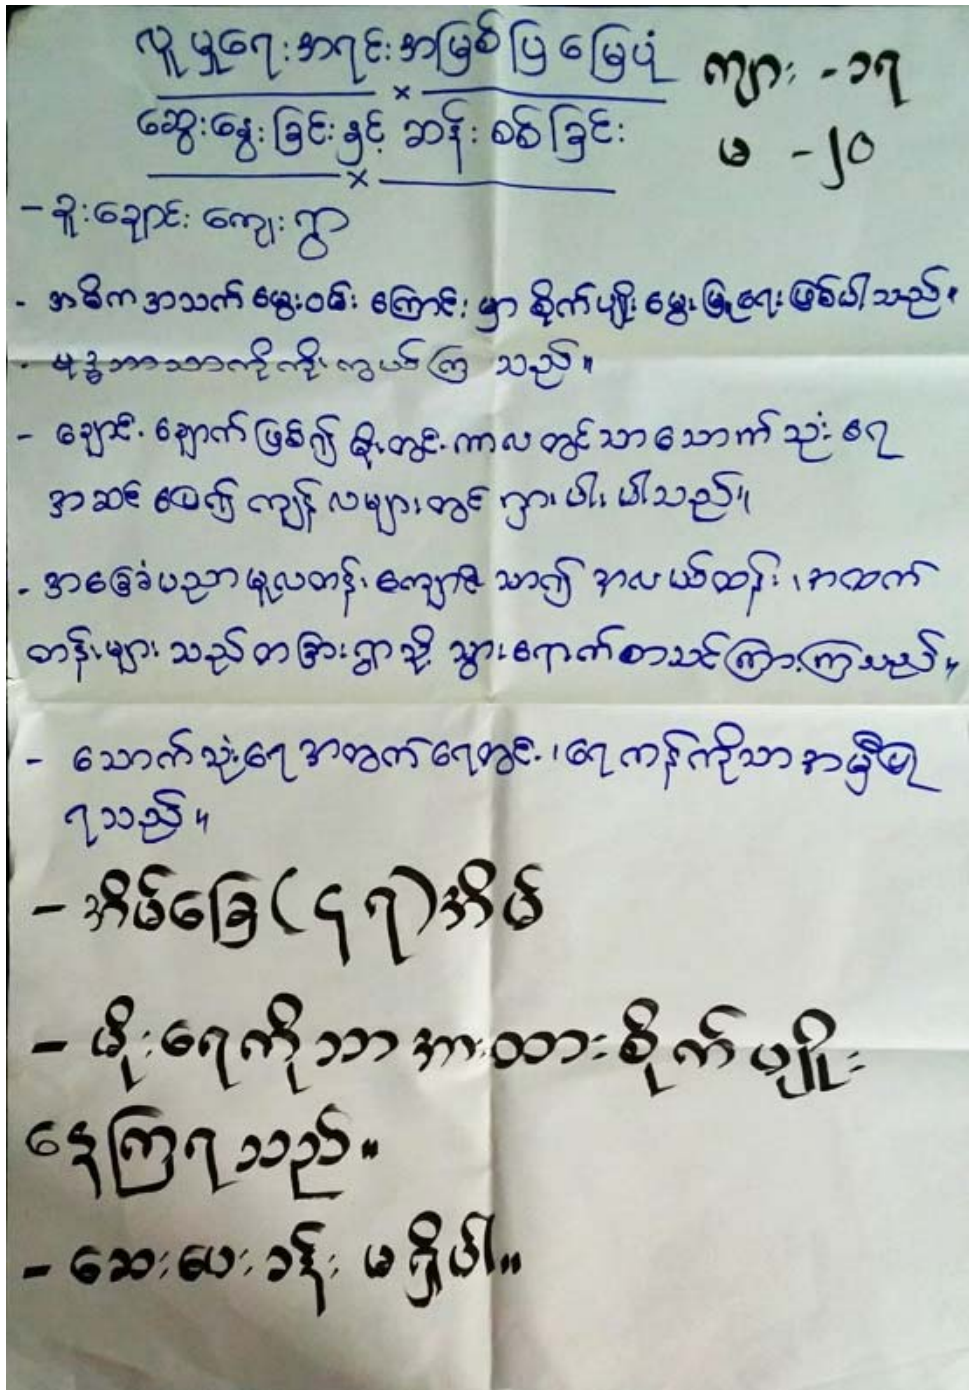 လူမှုရေးအရင်းအမြစ်ပြမြေပုံ
ဆွေးနွေးခြင်းနှင့် ဆန်းစစ်ခြင်း
ကျား - ၁၅
မ - ၂၀
- ဒူးချောင်းကျေးရွာ
- အဓိကအသက်မွေးဝမ်းကြောင်းမှာ စိုက်ပျိုးမွေးမြူရေးဖြစ်ပါသည်။
- ဗုဒ္ဓဘာသာကိုကိုးကွယ်ကြသည်။
- ချောင်းချောက်ဖြစ်၍ မိုးတွင်းကာလတွင်သာသောက်သုံးရေ
အဆင်ပြေ၍ ကျန်လများတွင် ရှားပါးပါသည်။
- အခြေခံပညာမူလတန်းကျောင်းသာ၍ အလယ်တန်း၊အထက်
တန်းများသည်တခြားရွာသို့ သွားရောက်စာသင်ကြားကြသည်။
- သောက်သုံးရေအတွက်ရေတွင်း၊ရေကန်ကိုသာအမှီပြု
ရသည်။
- အိမ်ခြေ(၄၅)အိမ်
- မိုးရေကိုသာအားထားစိုက်ပျိုး
နေကြရသည်။
- ဆေးပေးခန်းမရှိပါ။